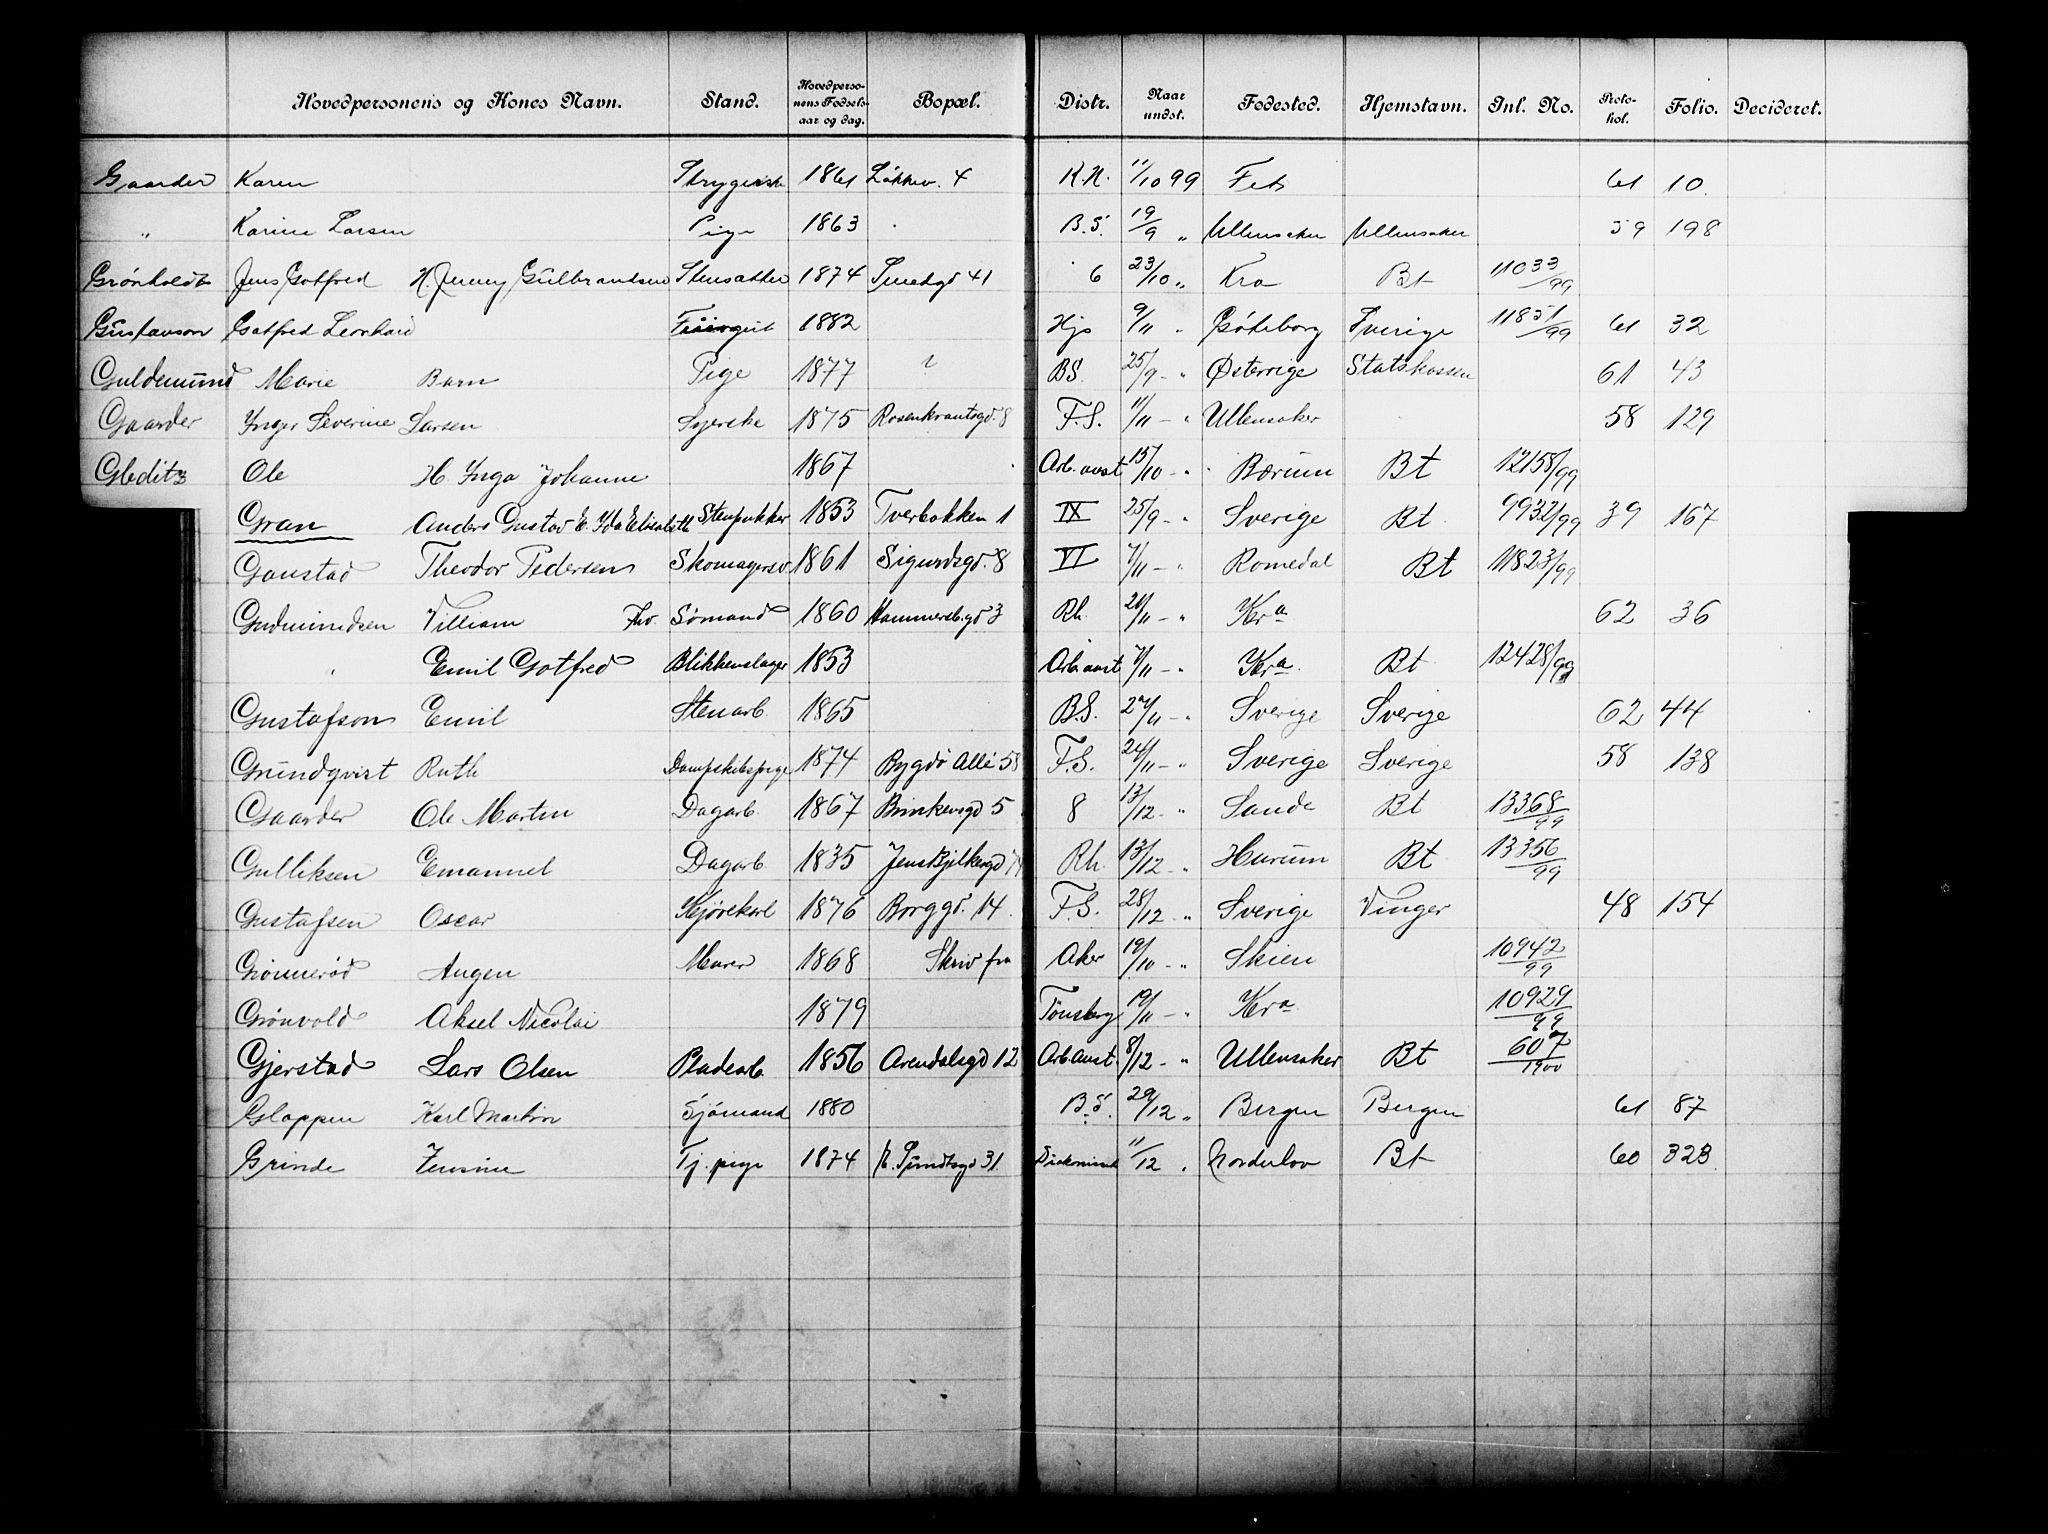 Hovedpersonens og Kones Navn. Stand. Hovedpersonens Fødselsaar og dag. Bopæl. Distr. Naar undst. Fødested. Hjemstavn. Inl. No. Protokol. Folio. Decideret.
Gaarder Karen Strygerske 1861 Løkkev. 4 K.H. 11/10 99 Fet 61 10.
" Karine Larsen Pige 1863 B.S. 19/9 " Ullensaker Ullensaker 59 198
Grönholdt Jens Gotfred H. Jenny Gulbrandsen Stensætter 1874 Smedgd 41 6 23/10 " Kra Bt 11033/99
Gustavson Gotfred Leonhard 1882 Hjs 9/11 " Göteborg Sverige 11851/99 61 32
Guldemund Marie Barn Pige 1877 BS. 25/9 - " Østerrige Statskassen 61 43
Gaarder Inger Severine Larsen Syerske 1875 Rosenkrantsgd. 8 F.S. 11/11 - " Ullensaker 58 129
Gleditz Ole H. Inga Johanne 1867 Arb. anst 15/10 - " Bærum Bt 12158/99
Gran Anders Gustav E. Ida Elisabeth Stenpukker 1853 Tverbakken 1 IX 25/9 - " Sverige Bt 9932/99 39 167
Gaustad Theodor Pedersen Skomagersv. 1861 Sigurdsgd. 8 VI 7/11 - " Romedal Bt 11823/99
Gudmundsen Villiam Fhv. Sömand 1860 Hammersb.gd 3 Rh. 20/11 - " Kra 62 36
" Emil Gotfred Blikkenslager 1853 Arb. anst 7/11 - " Kra Bt 12428/99
Gustafson Emil Stenarb. 1865 B.S. 27/11 - " Sverige Sverige 62 44
Grundqvist Ruth Dampskibspige 1874 Bygdö Allé 58 F.S. 24/11 - " Sverige Sverige 58 138
Gaarder Ole Martin Dagarb. 1867 Brinkensgd 5 8 13/12 - " Sande Bt 13368/99
Gulliksen Emanuel Dagarb 1835 Jens Bjelkesgd Rh. 13/12 - " Hurum Bt 13356/99
Gustafsen Oscar Kjörekarl 1876 Borggd. 14. F.S. 28/12 - " Sverige Vinger 48 154
Grönnerød Augen Murer 1868 Skriv fra Aker 19/10 - " Skien 10942/99
Grönvold Aksel Nicolai 1879 Tönsberg 19/11 - " Kra 10929/99
Gjerstad Lars Olsen Pladearb. 1856 Arendalsgd 12 Arb. Anst. 8/12 - " Ullensaker Bt 607/1900
Gloppen Karl Martin Sjömand 1880 B.S. 29/12 " Bergen Bergen 61 87
Grinde Jensine Tj. pige 1874 E. Sundtsgd 31 11/12 " Norderhov Bt 60 323.